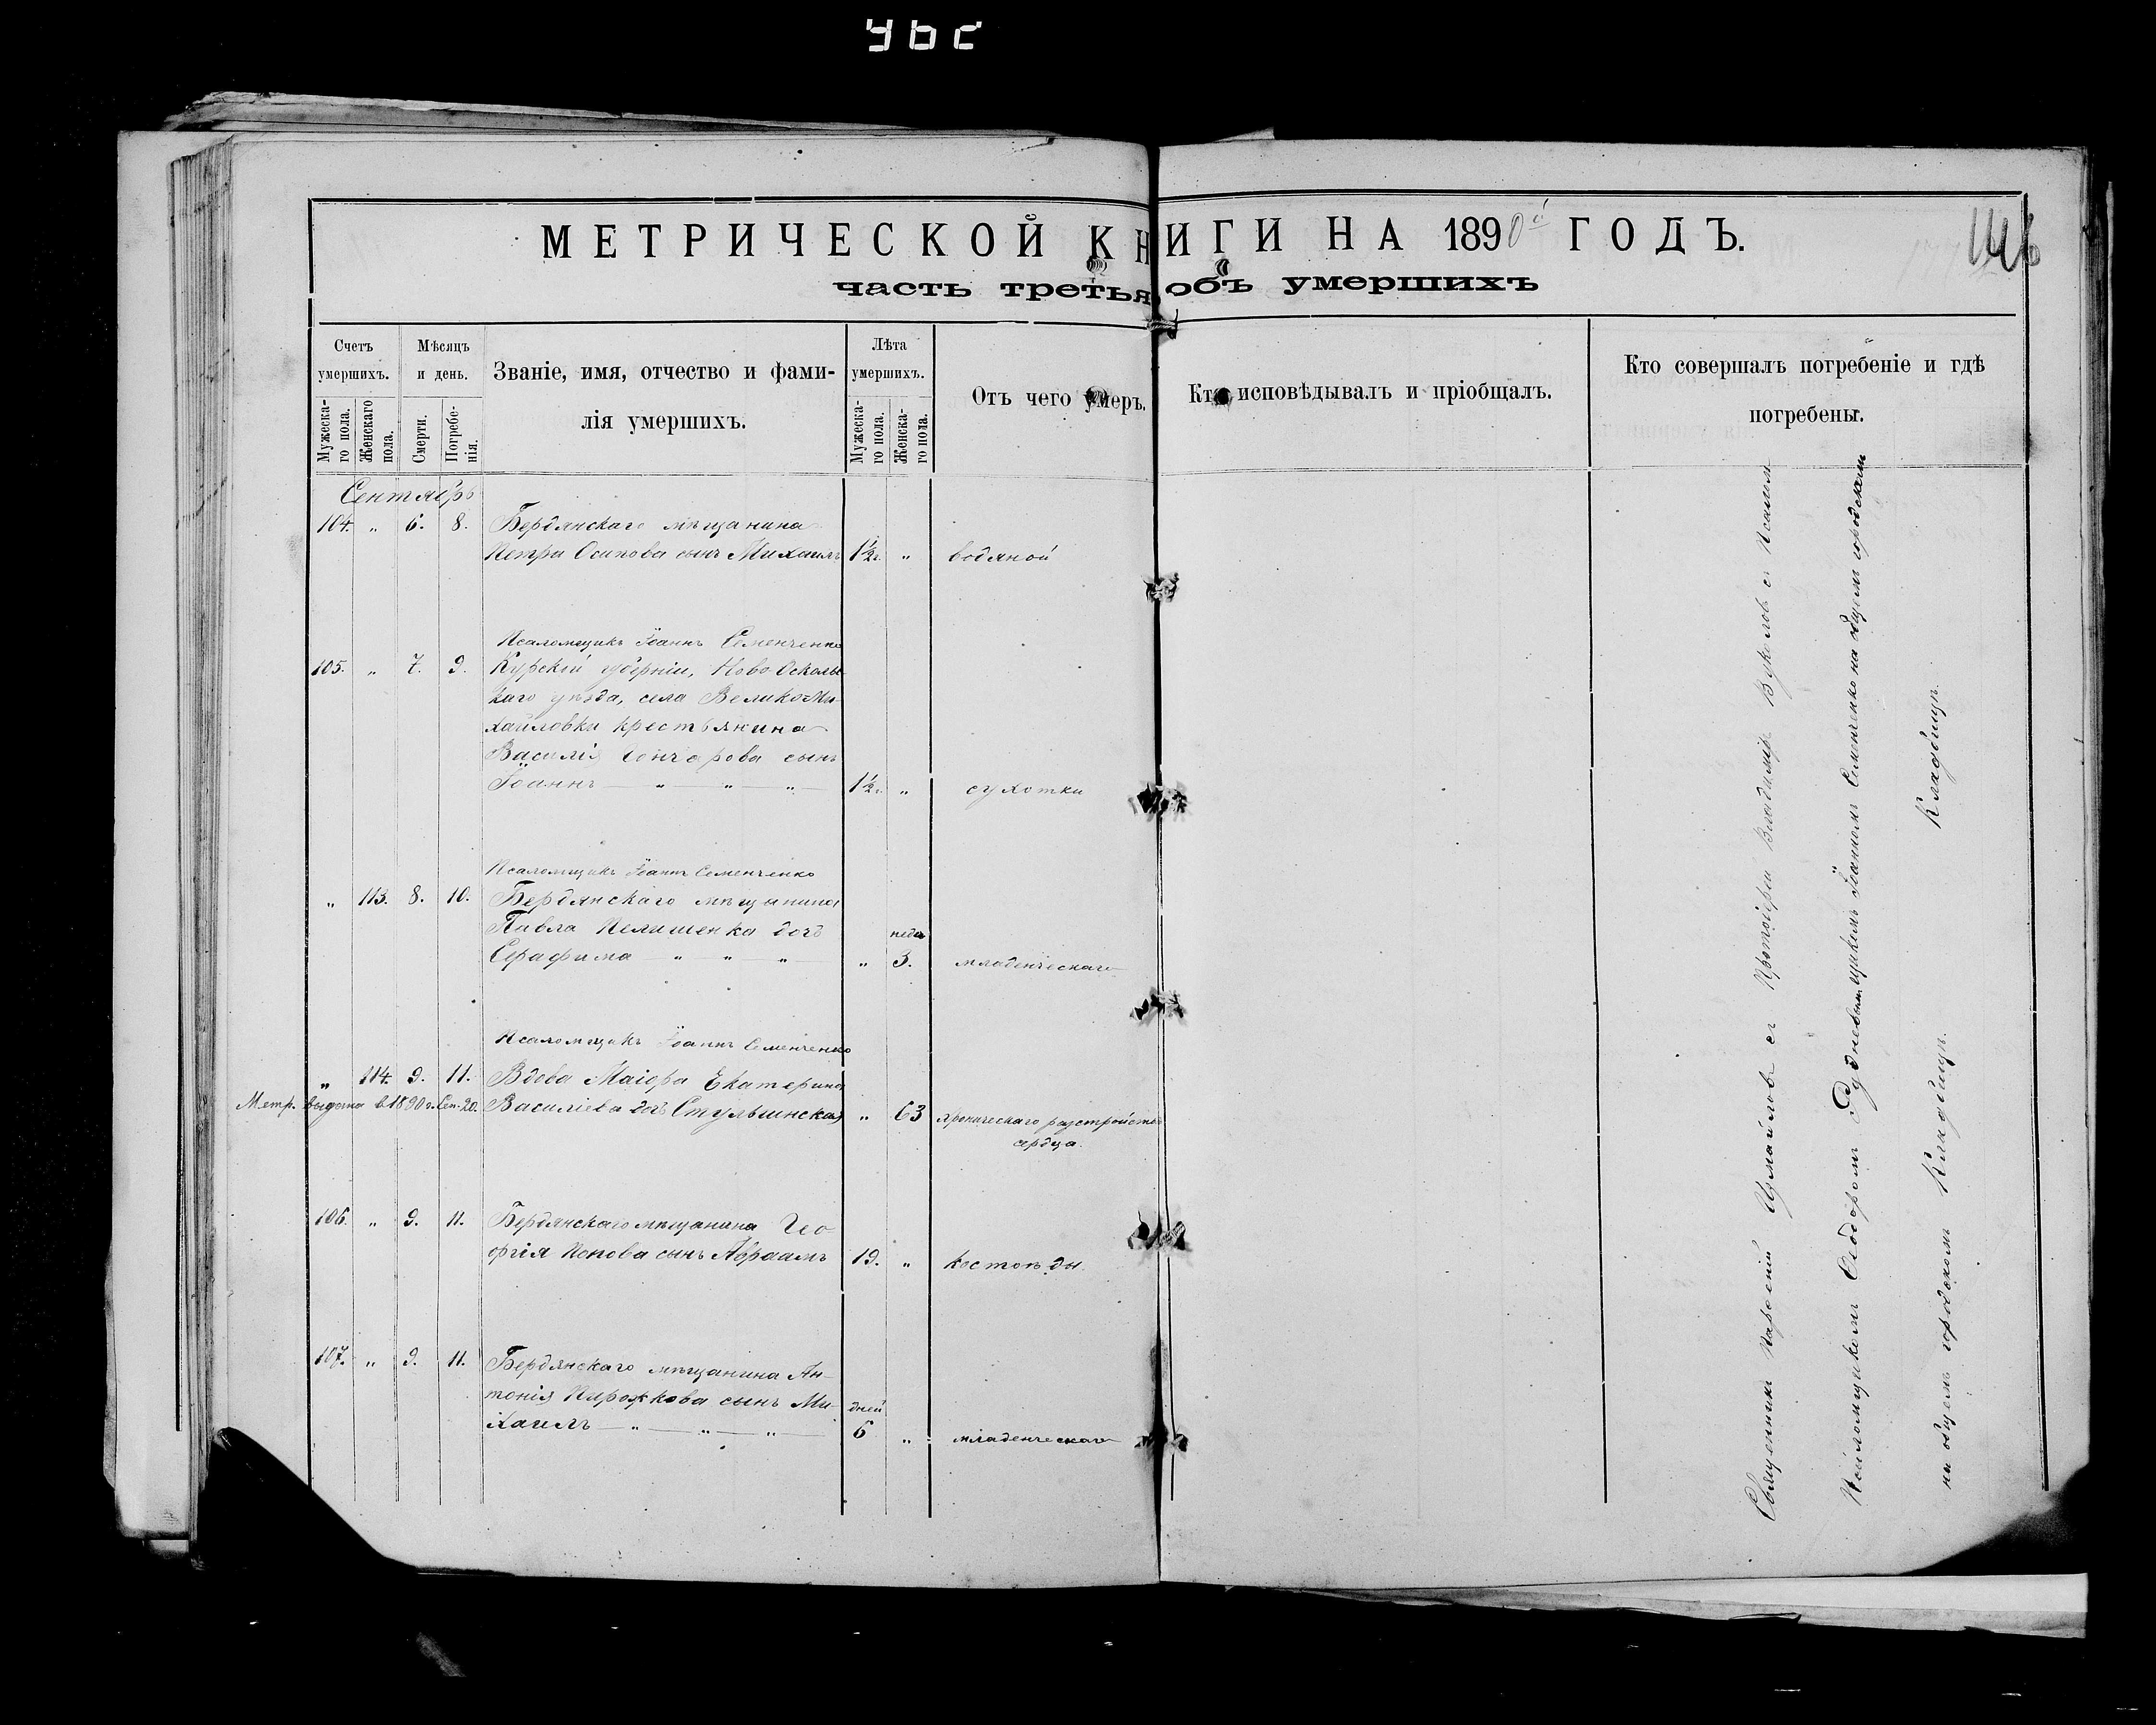 МЕТРИЧЕСКОЙ КНИГИ НА 1890й ГОДЪ.
146
часть третья, объ умершихъ
Счетъ умершихъ.
Мужеска-го пола.
Женскаго пола.
Мѣсяцъ и день.
Смерти.
Погребе-нія.
Званіе, имя, отчество и фами-
лія умершихъ.
Лѣта умершихъ.
Мужеска-го пола.
Женска-го пола.
Отъ чего умеръ.
Кто исповѣдывалъ и пріобщалъ.
Кто совершалъ погребеніе и гдѣ
погребены.
Сентябрь
104. „ 6. 8. Бердянскаго мѣщанина
Петра Осипова сынъ Михаилъ 1½ г. „ водяной
Псаломщикъ Іоаннъ Семенченко
105. „ 7. 9. Курскій губерніи, Ново Осколь-
каго уѣзда, села Велико-Ми-
хайловки крестьянина
Василія Гончарова сынъ
Іоаннъ — „ — „ — „ — 1½ г. „ сухотки
Псаломщикъ Іоаннъ Семенченко
„ 113. 8. 10. Бердянскаго мѣщанина
Павла дочь недѣ
Серафима — „ — „ — „ „ 3. младенческаго
Псаломщикъ Іоаннъ Семенченко
„ 114. 9. 11. Вдова Маіора Екатерина
Метр. выдана в 1890 г. Сен. 20. Василіева дочь „ 63 хроническаго разстройства
сердца.
106. „ 9. 11. Бердянскаго мѣщанина Гео-
ргія Попова сынъ Авраамъ 19. „ костоѣды
107. „ 9. 11. Бердянскаго мѣщанина Ан-
тонія Пирожкова сынъ Ми- дней
хаилъ — „ — „ — „ — 6 „ младенческаго
Священникъ Измайловъ съ Протоіерей Владиміръ Вуколовъ съ Псалом
Псаломщикомъ Ѳеодоромъ Рудневымъ щикомъ Іоанномъ Семенченко на общемъ городскомъ
на общемъ городскомъ Кладбищѣ. Кладбищѣ.